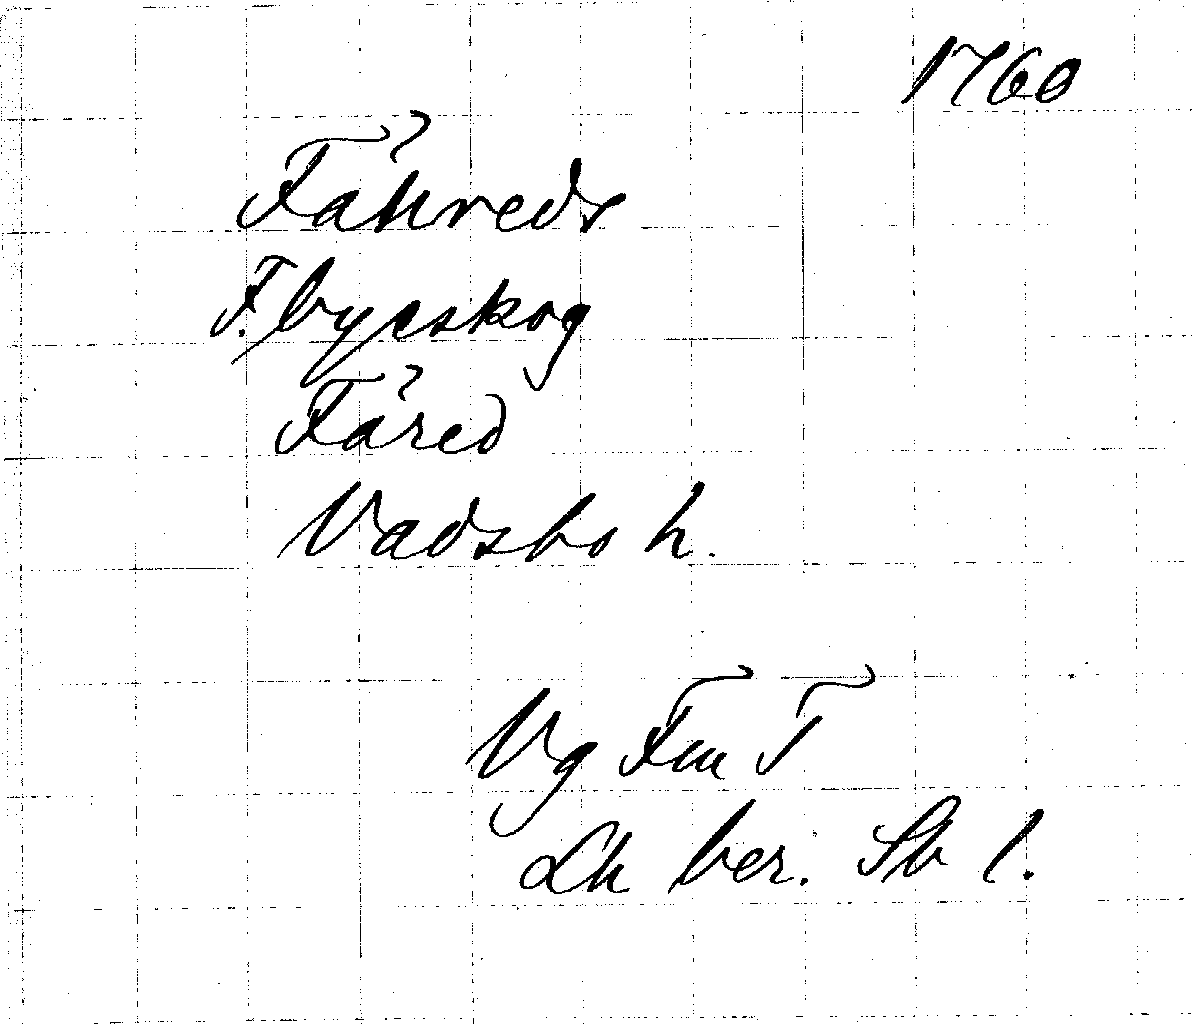 1760
Fåhreds
F. bycskog
Fåred
Vadsbo h.
Vg Fm T
Lh ber. Sk l.